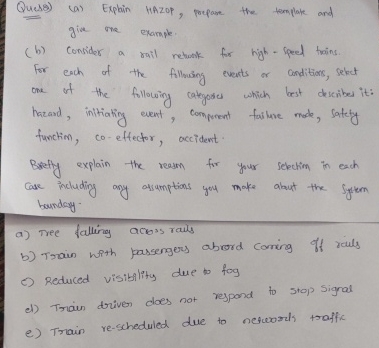 Ques8) (a) Explain HAZOP, prepare the template and
give one example.
(b) Consider a rail network for high-speed trains.
For each of the following events or conditions, select
one of the following categories which best describes it:
hazard, initiating event, component failure mode, safety
function, co-effector, accident.
Briefly explain the reason for your selection in each
case including any assumptions you make about the system
boundary.
a) Tree falling across rails
b) Train with passengers aboard coming off rails
c) Reduced visibility due to fog
d) Train driver does not respond to stop signal
e) Train re-scheduled due to network traffic